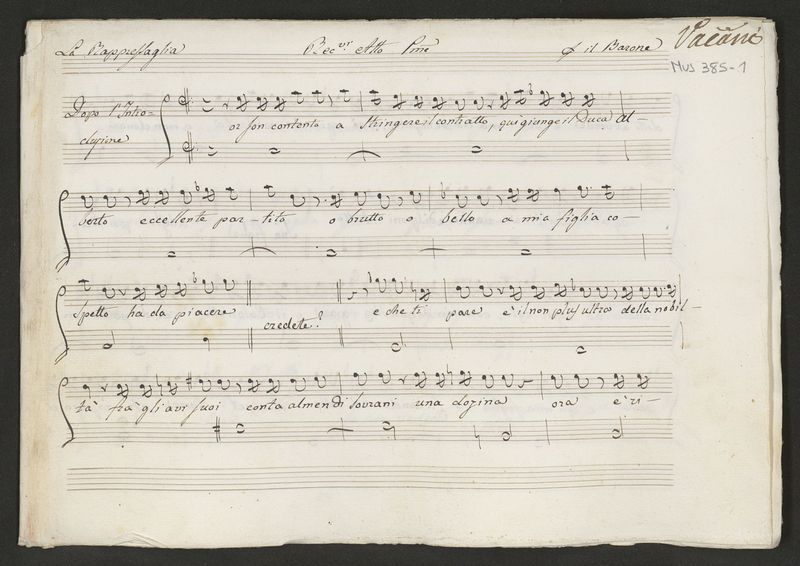 La Rappressaglia Rec.vi Atto Pmo il Barone Vaccani
Mus 385-1
Dopo l'Intro-
or son contento a stringere il contratto, qui giunge il Duca al-
duzione
berto eccellente par-tito o brutto o bello a mia figlia co-
spetto ha da piacere credete? e che ti pare è il non plus ultra della nobil-
tà fra gli avi suoi conta almen di sovrani una dozina ora è ri-